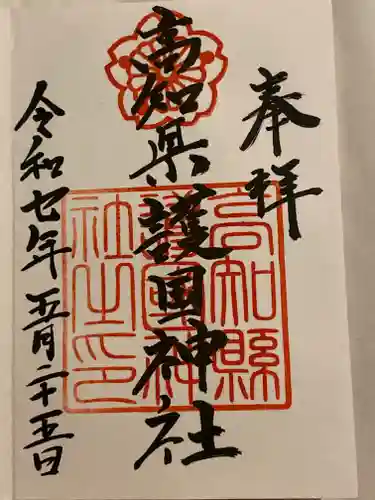 奉拝
高知県護國神社
令和七年五月二十五日
高知縣
護國神
社之印